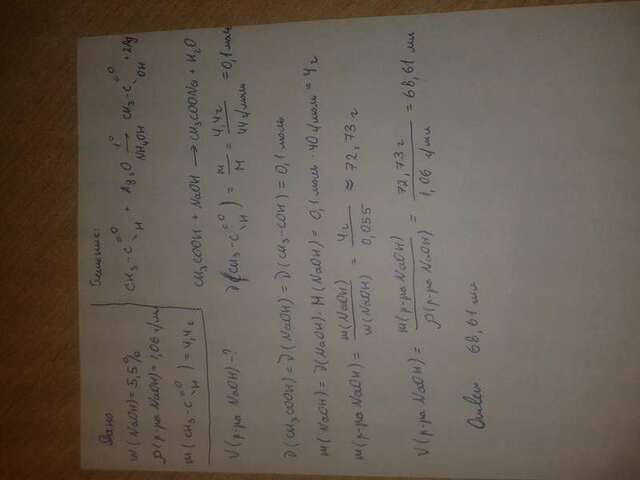 Дано
W(NaOH)=5,5%
ρ(р-ра NaOH)=1,06 г/мл
m(CH3-C=O H)=4,4г
V(р-ра NaOH)-?
Решение:
CH3-C=O H + Ag2O t° → NH4OH CH3-C=O OH +2Ag
CH3COOH + NaOH → CH3COONa + H2O
ν(CH3-C=O H) = m/M = 4,4г / 44 г/моль = 0,1 моль
ν(CH3COOH) = ν(NaOH) = ν(CH3-COH) = 0,1 моль
m(NaOH) = ν(NaOH)·M(NaOH) = 0,1 моль·40 г/моль = 4г
m(р-ра NaOH) = m(NaOH) / W(NaOH) = 4г / 0,055 ≈ 72,73 г
V(р-ра NaOH) = m(р-ра NaOH) / ρ(р-ра NaOH) = 72,73 г / 1,06 г/мл = 68,61 мл
Ответ: 68,61 мл